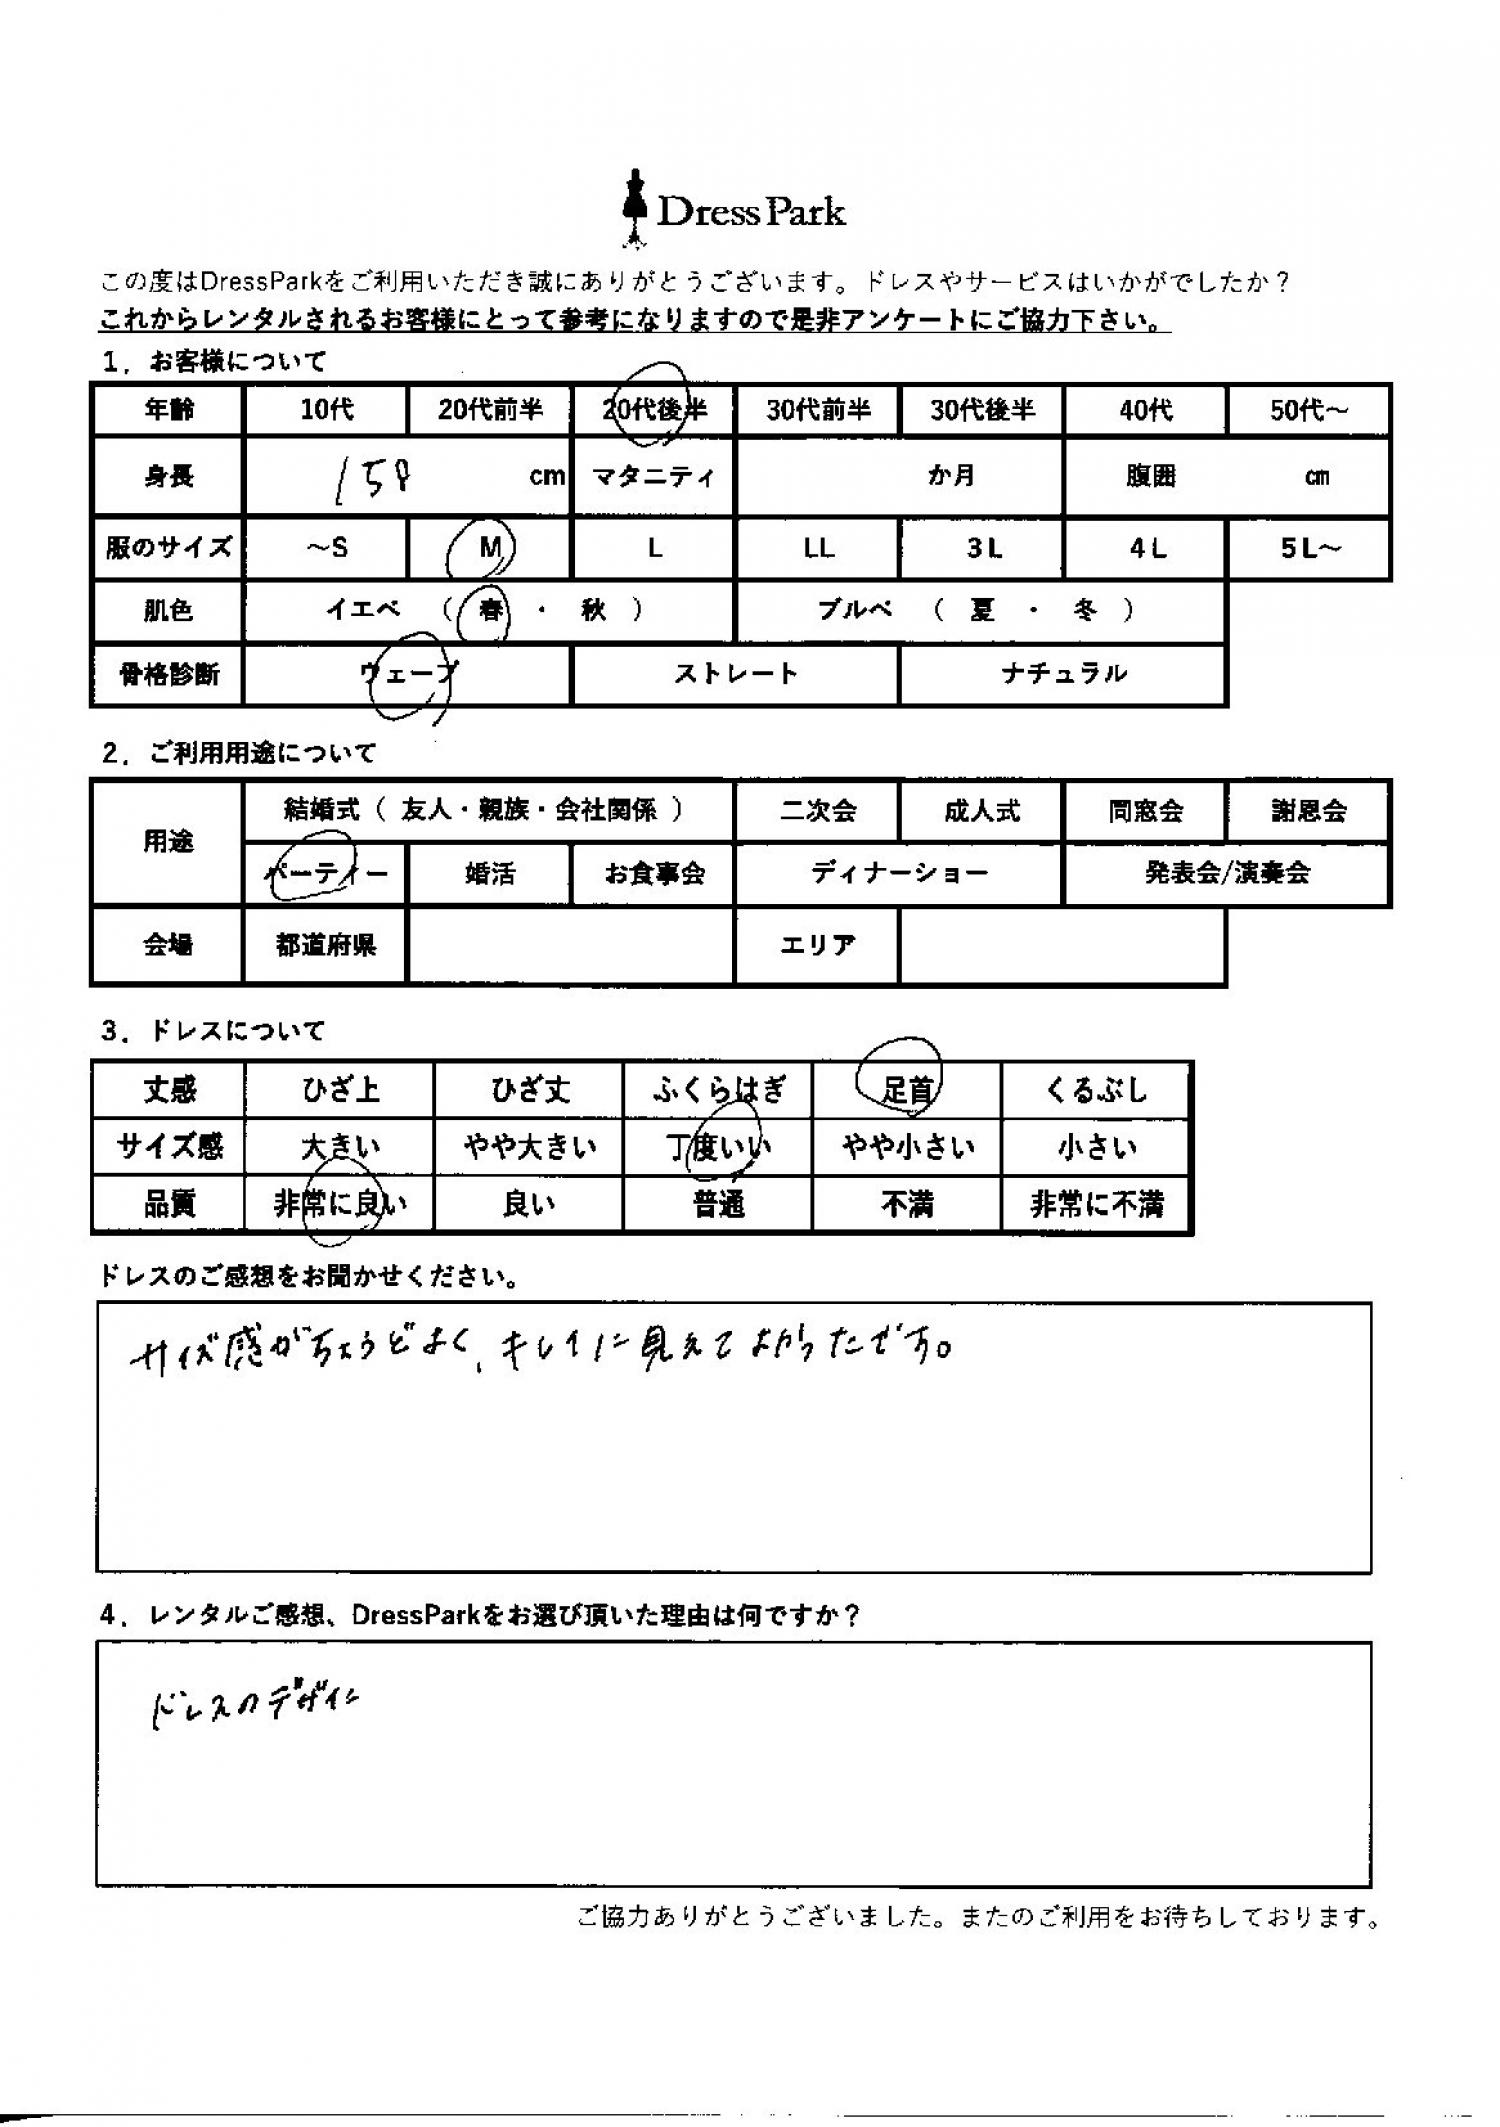 Dress Park
この度はDressParkをご利用いただき誠にありがとうございます。ドレスやサービスはいかがでしたか？
これからレンタルされるお客様にとって参考になりますので是非アンケートにご協力下さい。
1．お客様について
年齢 10代 20代前半 20代後半 30代前半 30代後半 40代 50代～
身長 158 cm マタニティ か月 腹囲 ㎝
服のサイズ ～S M L LL 3L 4L 5L～
肌色 イエベ （ 春 ・ 秋 ） ブルベ （ 夏 ・ 冬 ）
骨格診断 ウェーブ ストレート ナチュラル
2．ご利用用途について
用途 結婚式（ 友人・親族・会社関係 ） 二次会 成人式 同窓会 謝恩会
パーティー 婚活 お食事会 ディナーショー 発表会/演奏会
会場 都道府県 エリア
3．ドレスについて
丈感 ひざ上 ひざ丈 ふくらはぎ 足首 くるぶし
サイズ感 大きい やや大きい 丁度いい やや小さい 小さい
品質 非常に良い 良い 普通 不満 非常に不満
ドレスのご感想をお聞かせください。
サイズ感がちょうどよく、キレイに見えてよかったです。
4．レンタルご感想、DressParkをお選び頂いた理由は何ですか？
ドレスのデザイン
ご協力ありがとうございました。またのご利用をお待ちしております。